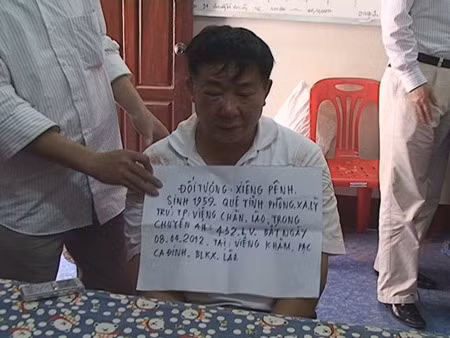 ĐỐI TƯỢNG: XIÊNG PÊNH.
SINH 1959. QUÊ TỈNH PHÔNG, XA LỲ
TRU, TP. VIÊNG CHĂN, LÀO, TRONG
CHUYÊN ÁN 432.LV. BẮT NGÀY
08.09.2012. TẠI VIÊNG KHĂM, PẠC
CA ĐINH, BLKX, LÀO